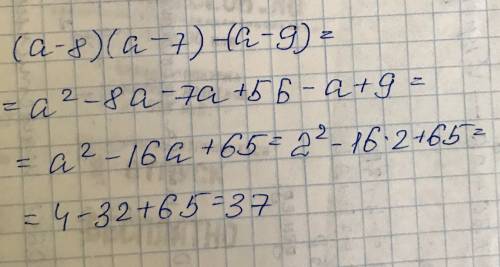 (a-8)(a-7)-(a-9)=
=a²-8a-7a+56-a+9=
=a²-16a+65=2²-16·2+65=
=4-32+65=37